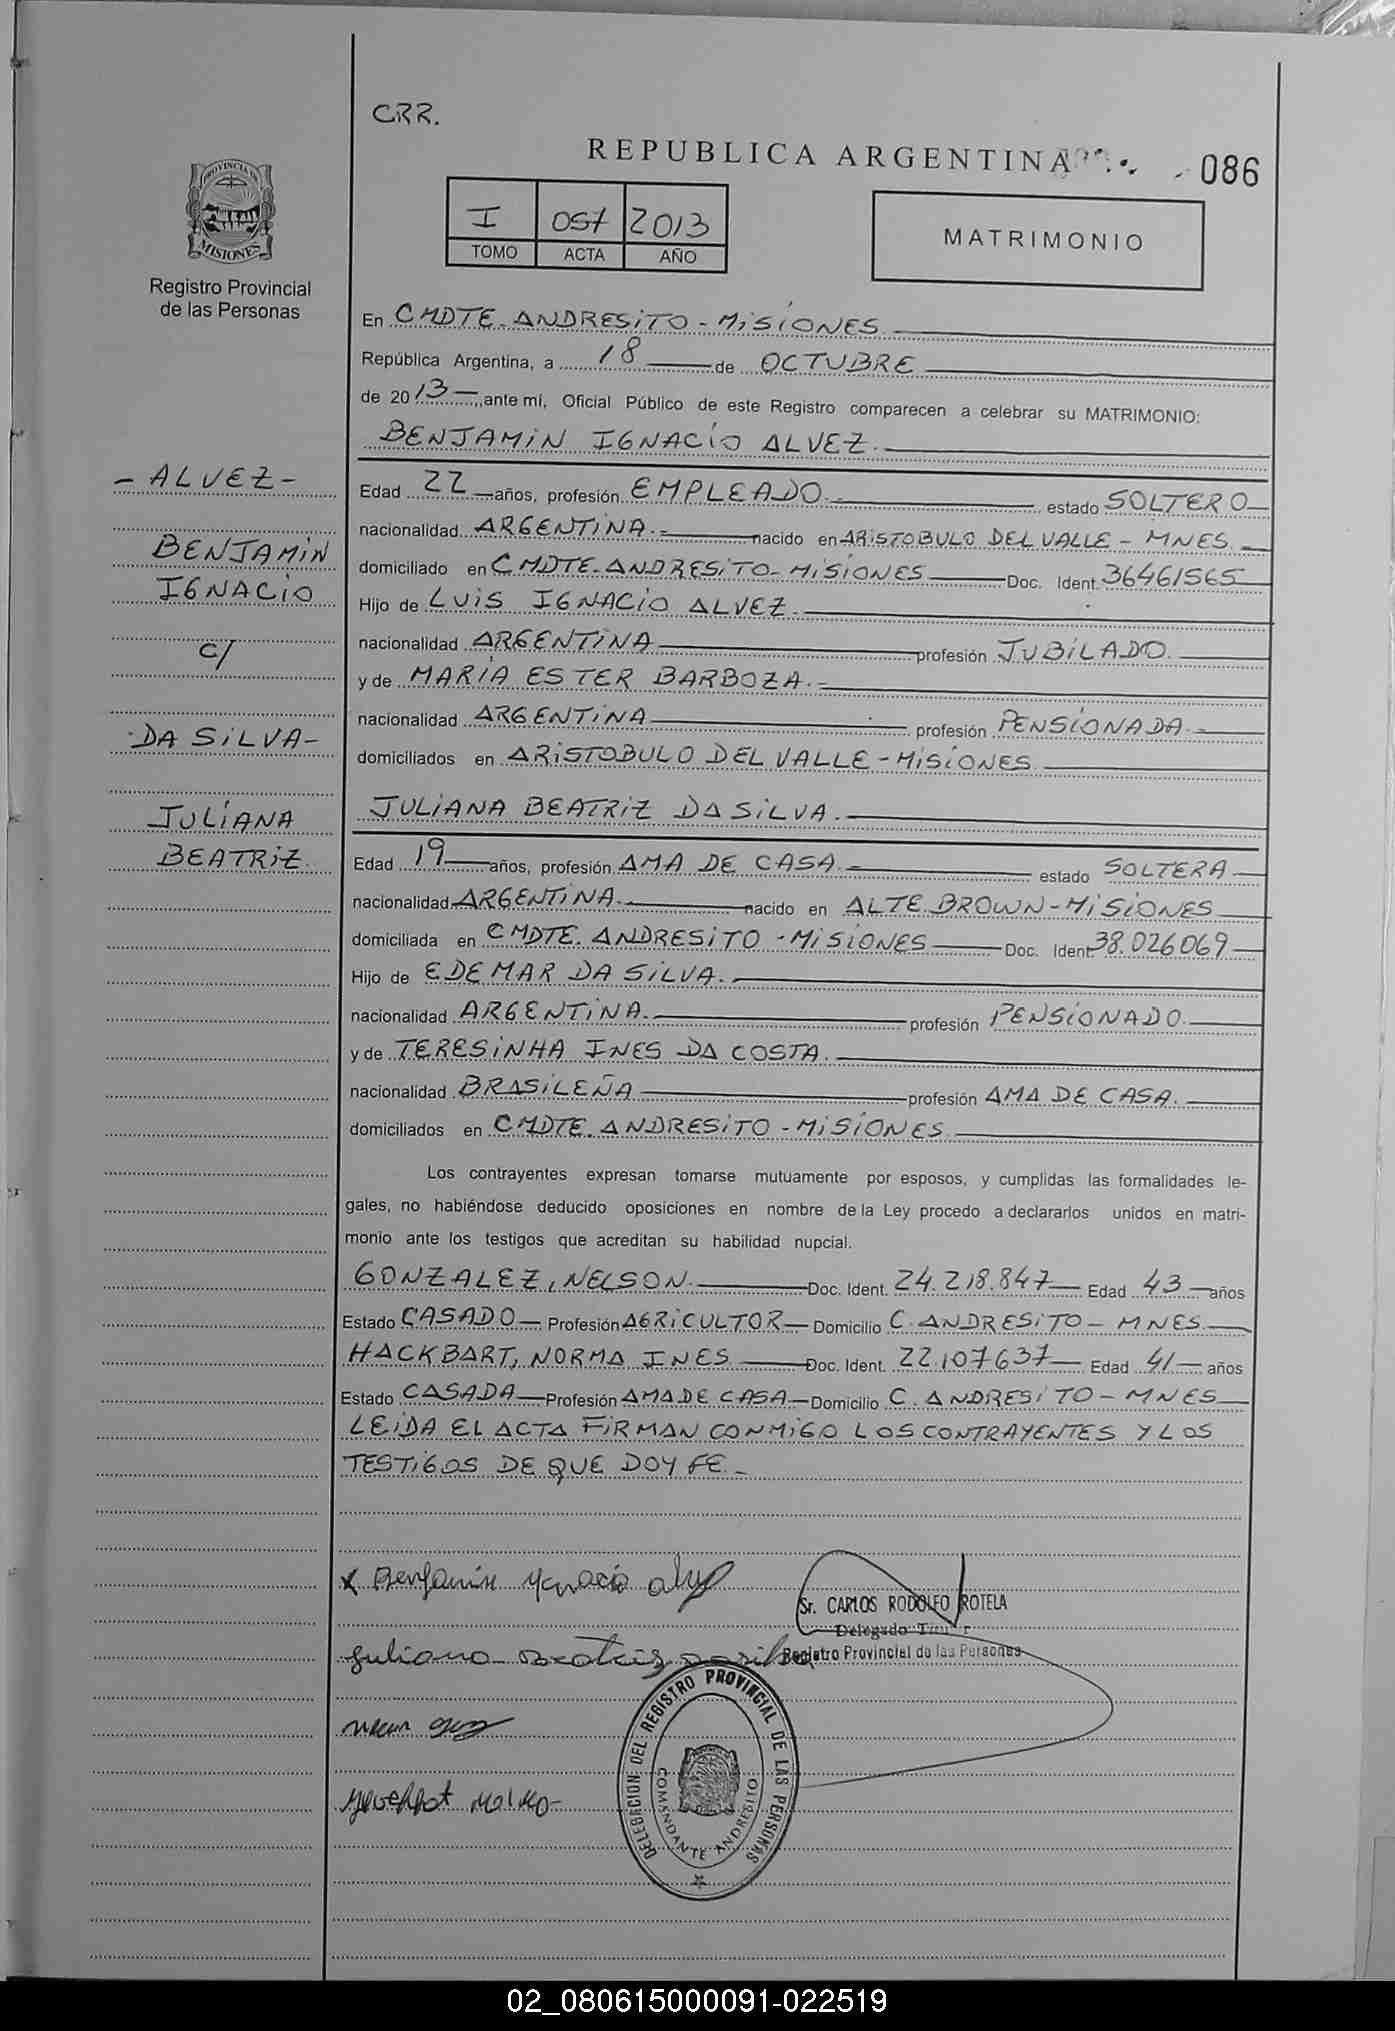 CRR.
REPUBLICA ARGENTINA
086
PROVINCIA
MISIONES
Registro Provincial
de las Personas
I 057 2013
TOMO ACTA AÑO
MATRIMONIO
En CMDTE. ANDRESITO - MISIONES.
República Argentina, a 18 de OCTUBRE
de 2013, ante mí, Oficial Público de este Registro comparecen a celebrar su MATRIMONIO:
BENJAMIN IGNACIO ALVEZ.
- ALVEZ -
BENJAMIN
IGNACIO
C/
DA SILVA -
JULIANA
BEATRIZ.
Edad 22 años, profesión EMPLEADO. estado SOLTERO
nacionalidad ARGENTINA. nacido en ARISTOBULO DEL VALLE - MNES.
domiciliado en CMDTE. ANDRESITO - MISIONES Doc. Ident. 36461565
Hijo de LUIS IGNACIO ALVEZ.
nacionalidad ARGENTINA profesión JUBILADO.
y de MARIA ESTER BARBOZA.
nacionalidad ARGENTINA profesión PENSIONADA.
domiciliados en ARISTOBULO DEL VALLE - MISIONES
JULIANA BEATRIZ DA SILVA.
Edad 19 años, profesión AMA DE CASA. estado SOLTERA
nacionalidad ARGENTINA. nacido en ALTE. BROWN - MISIONES
domiciliada en CMDTE. ANDRESITO - MISIONES Doc. Ident. 38.026069
Hijo de EDEMAR DA SILVA.
nacionalidad ARGENTINA. profesión PENSIONADO.
y de TERESINHA INES DA COSTA.
nacionalidad BRASILEÑA profesión AMA DE CASA.
domiciliados en CMDTE. ANDRESITO - MISIONES.
Los contrayentes expresan tomarse mutuamente por esposos, y cumplidas las formalidades le-
gales, no habiéndose deducido oposiciones en nombre de la Ley procedo a declararlos unidos en matri-
monio ante los testigos que acreditan su habilidad nupcial.
GONZALEZ, NELSON. Doc. Ident. 24.218.847 Edad 43 años
Estado CASADO Profesión AGRICULTOR Domicilio C. ANDRESITO - MNES.
HACKBART, NORMA INES Doc. Ident. 22.107637 Edad 41 años
Estado CASADA Profesión AMA DE CASA Domicilio C. ANDRESITO - MNES
LEIDA EL ACTA FIRMAN CONMIGO LOS CONTRAYENTES Y LOS
TESTIGOS DE QUE DOY FE.
x Benjamin Ygnacio
Sr. CARLOS RODOLFO ROTELA
Delegado Titular
Registro Provincial de las Personas
Juliana Beatriz Dasilva
DELEGACION DEL REGISTRO PROVINCIAL DE LAS PERSONAS
COMANDANTE ANDRESITO
02_080615000091-022519